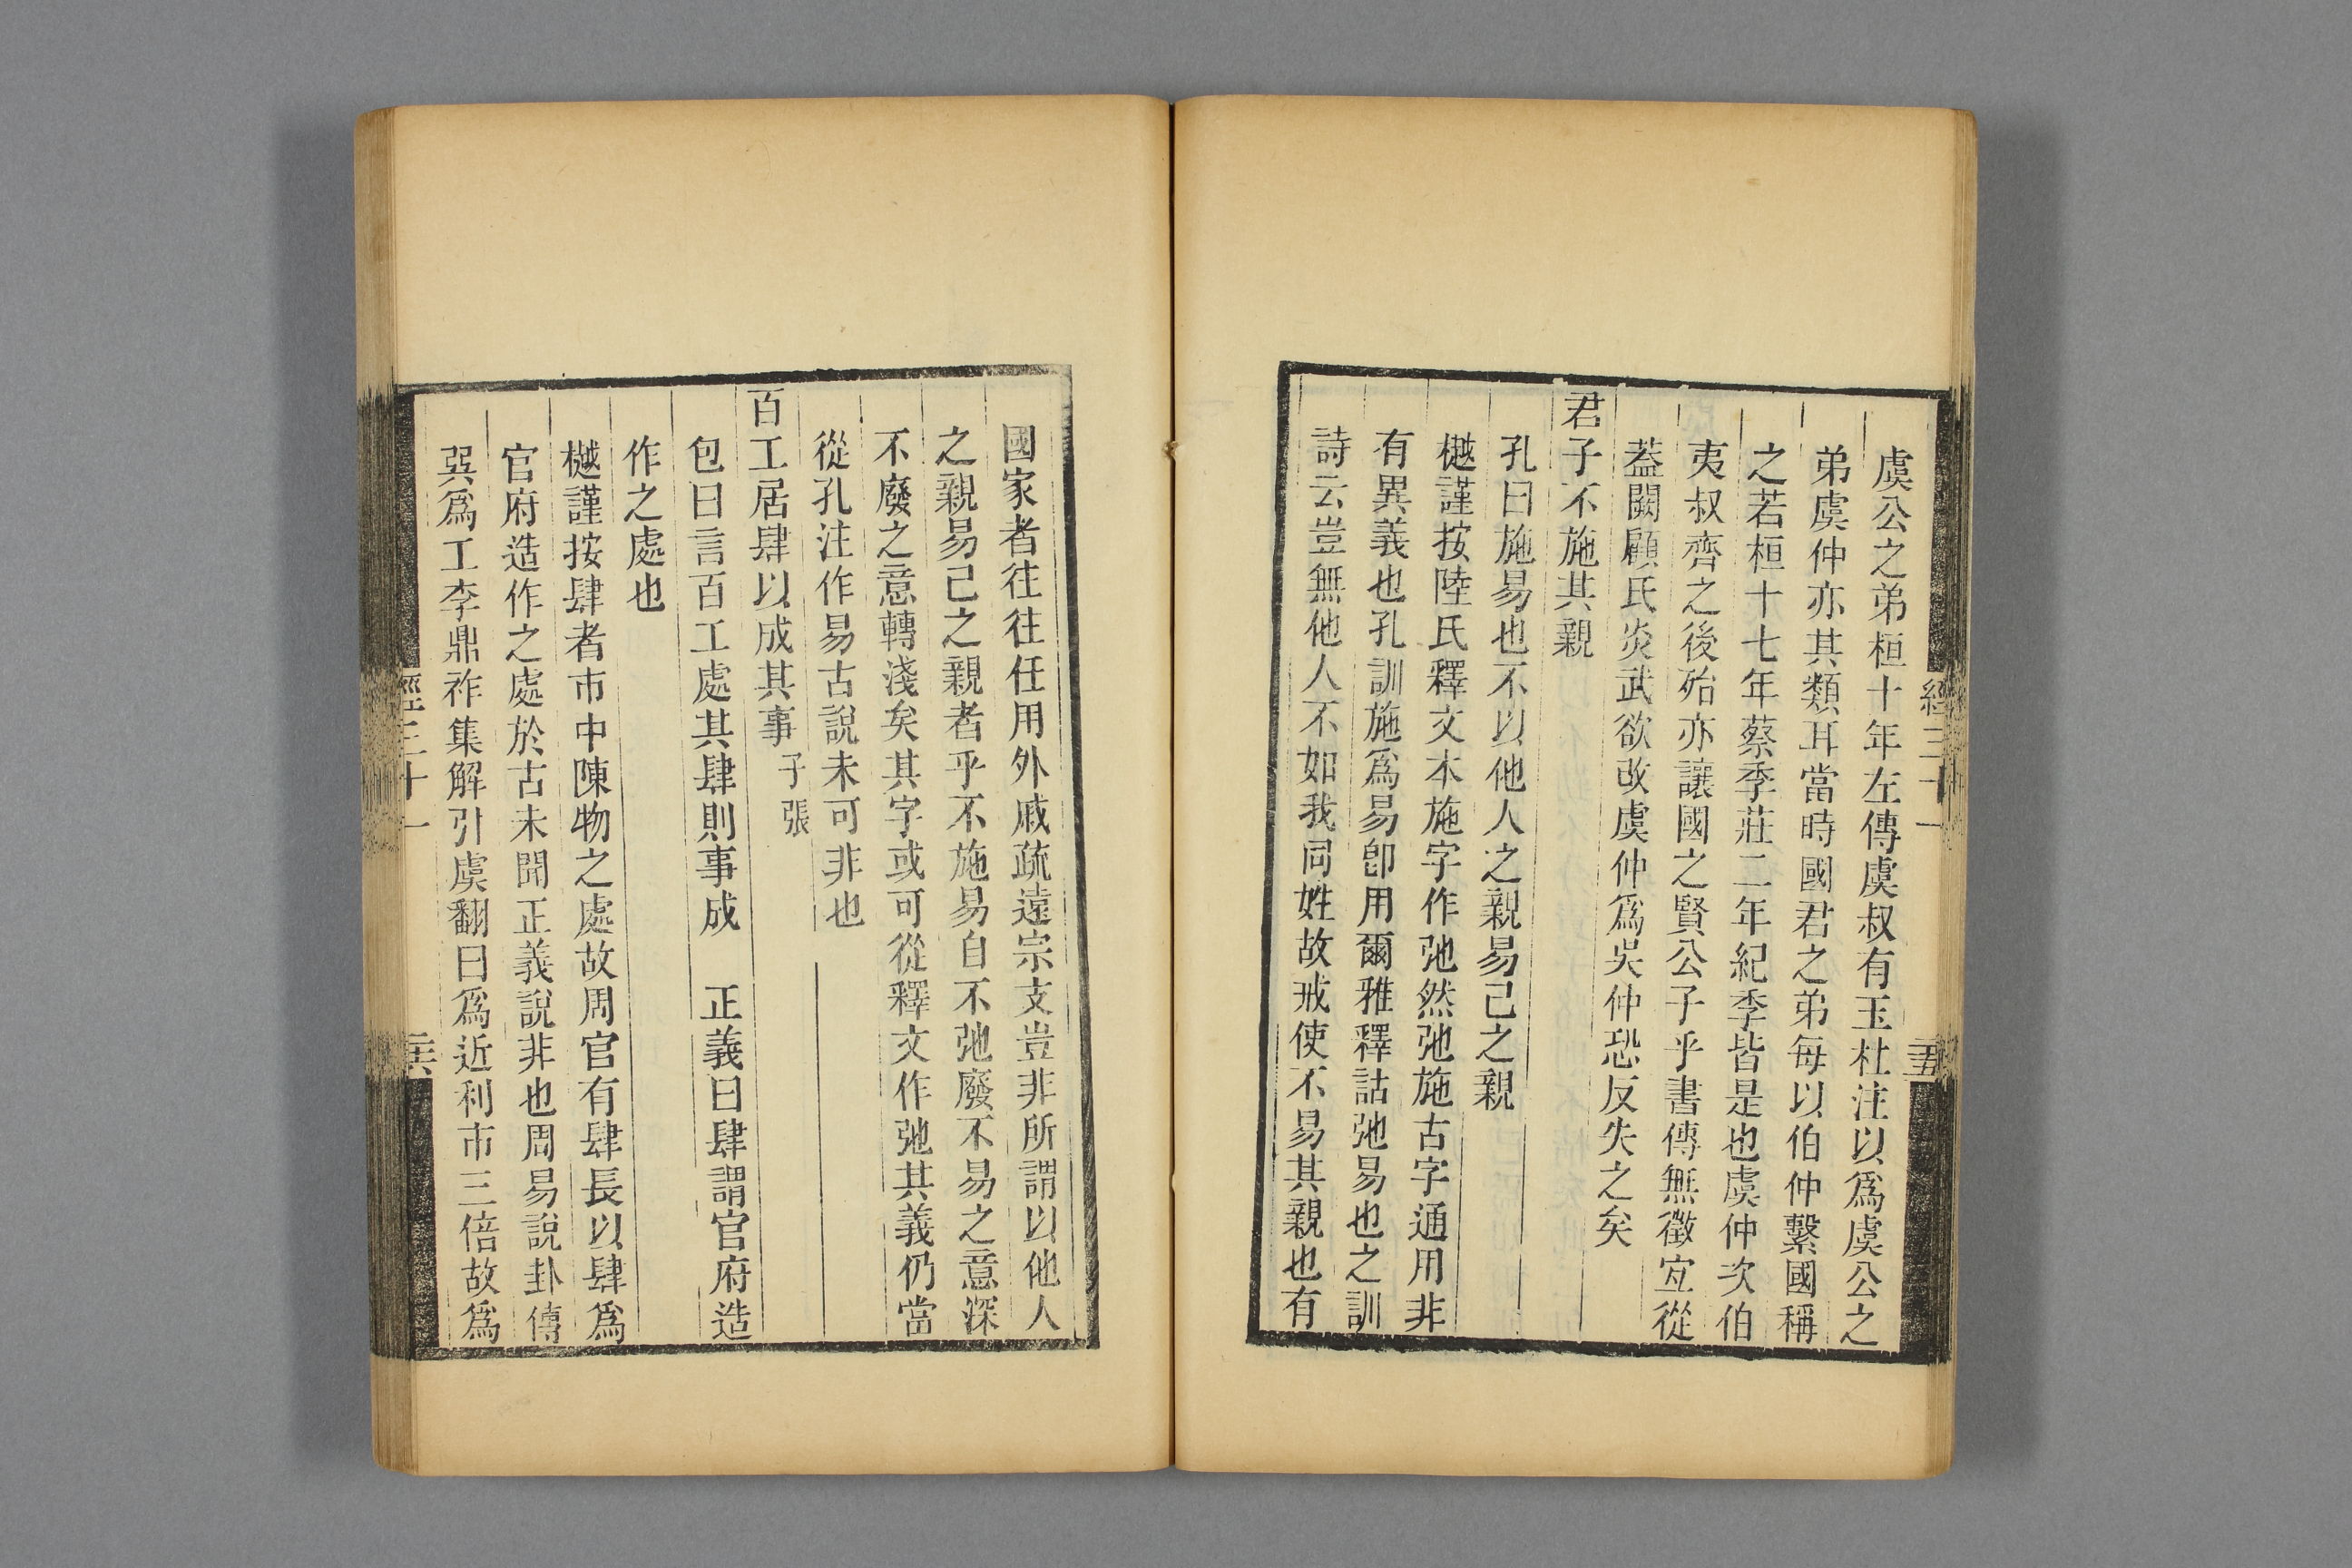 虞公之弟桓十年左傳虞叔有玉杜注以爲虞公之
弟虞仲亦其類耳當時國君之弟每以伯仲繫國稱
之若桓十七年蔡季莊二年紀季皆是也虞仲次伯
夷叔齊之後殆亦讓國之賢公子乎書傳無徵宐從
葢闕顧氏炎武欲改虞仲爲吳仲恐反失之矣
君子不施其親
孔曰施易也不以他人之親易己之親
樾謹按陸氏釋文本施字作弛然弛施古字通用非
有異義也孔訓施爲易卽用爾雅釋詁弛易也之訓
詩云豈無他人不如我同姓故戒使不易其親也有
經三十一
五
國家者往往任用外戚疏遠宗支豈非所謂以他人
之親易己之親者乎不施易自不弛廢不易之意深
不廢之意轉淺矣其字或可從釋文作弛其義仍當
從孔注作易古說未可非也
百工居肆以成其事子張
包曰言百工處其肆則事成　正義曰肆謂官府造
作之處也
樾謹按肆者市中陳物之處故周官有肆長以肆爲
官府造作之處於古未聞正義說非也周易說卦傳
巽爲工李鼎祚集解引虞翻曰爲近利市三倍故爲
經三十一